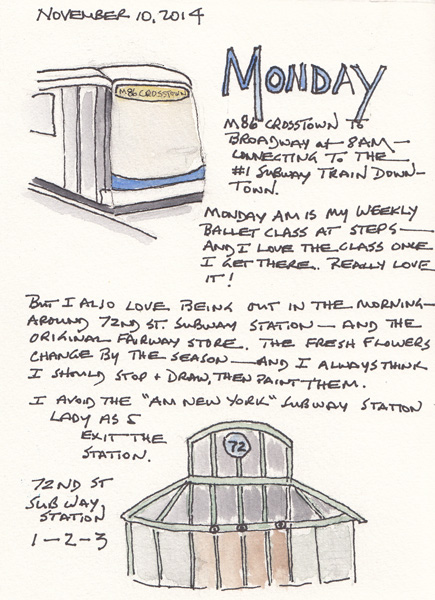 NOVEMBER 10, 2014
M86 CROSSTOWN
MONDAY
M86 CROSSTOWN TO
BROADWAY at 8AM—
CONNECTING TO THE
#1 SUBWAY TRAIN DOWN-
TOWN.
MONDAY AM IS MY WEEKLY
BALLET CLASS AT STEPS—
AND I LOVE THE CLASS ONCE
I GET THERE. REALLY LOVE
IT!
BUT I ALSO LOVE BEING OUT IN THE MORNING—
AROUND 72ND ST. SUBWAY STATION — AND THE
ORIGINAL FAIRWAY STORE. THE FRESH FLOWERS
CHANGE BY THE SEASON — AND I ALWAYS THINK
I SHOULD STOP + DRAW, THEN PAINT THEM.
I AVOID THE "AM NEW YORK" SUBWAY STATION
LADY AS I
EXIT THE
STATION.
72
72ND ST
SUBWAY
STATION
1-2-3